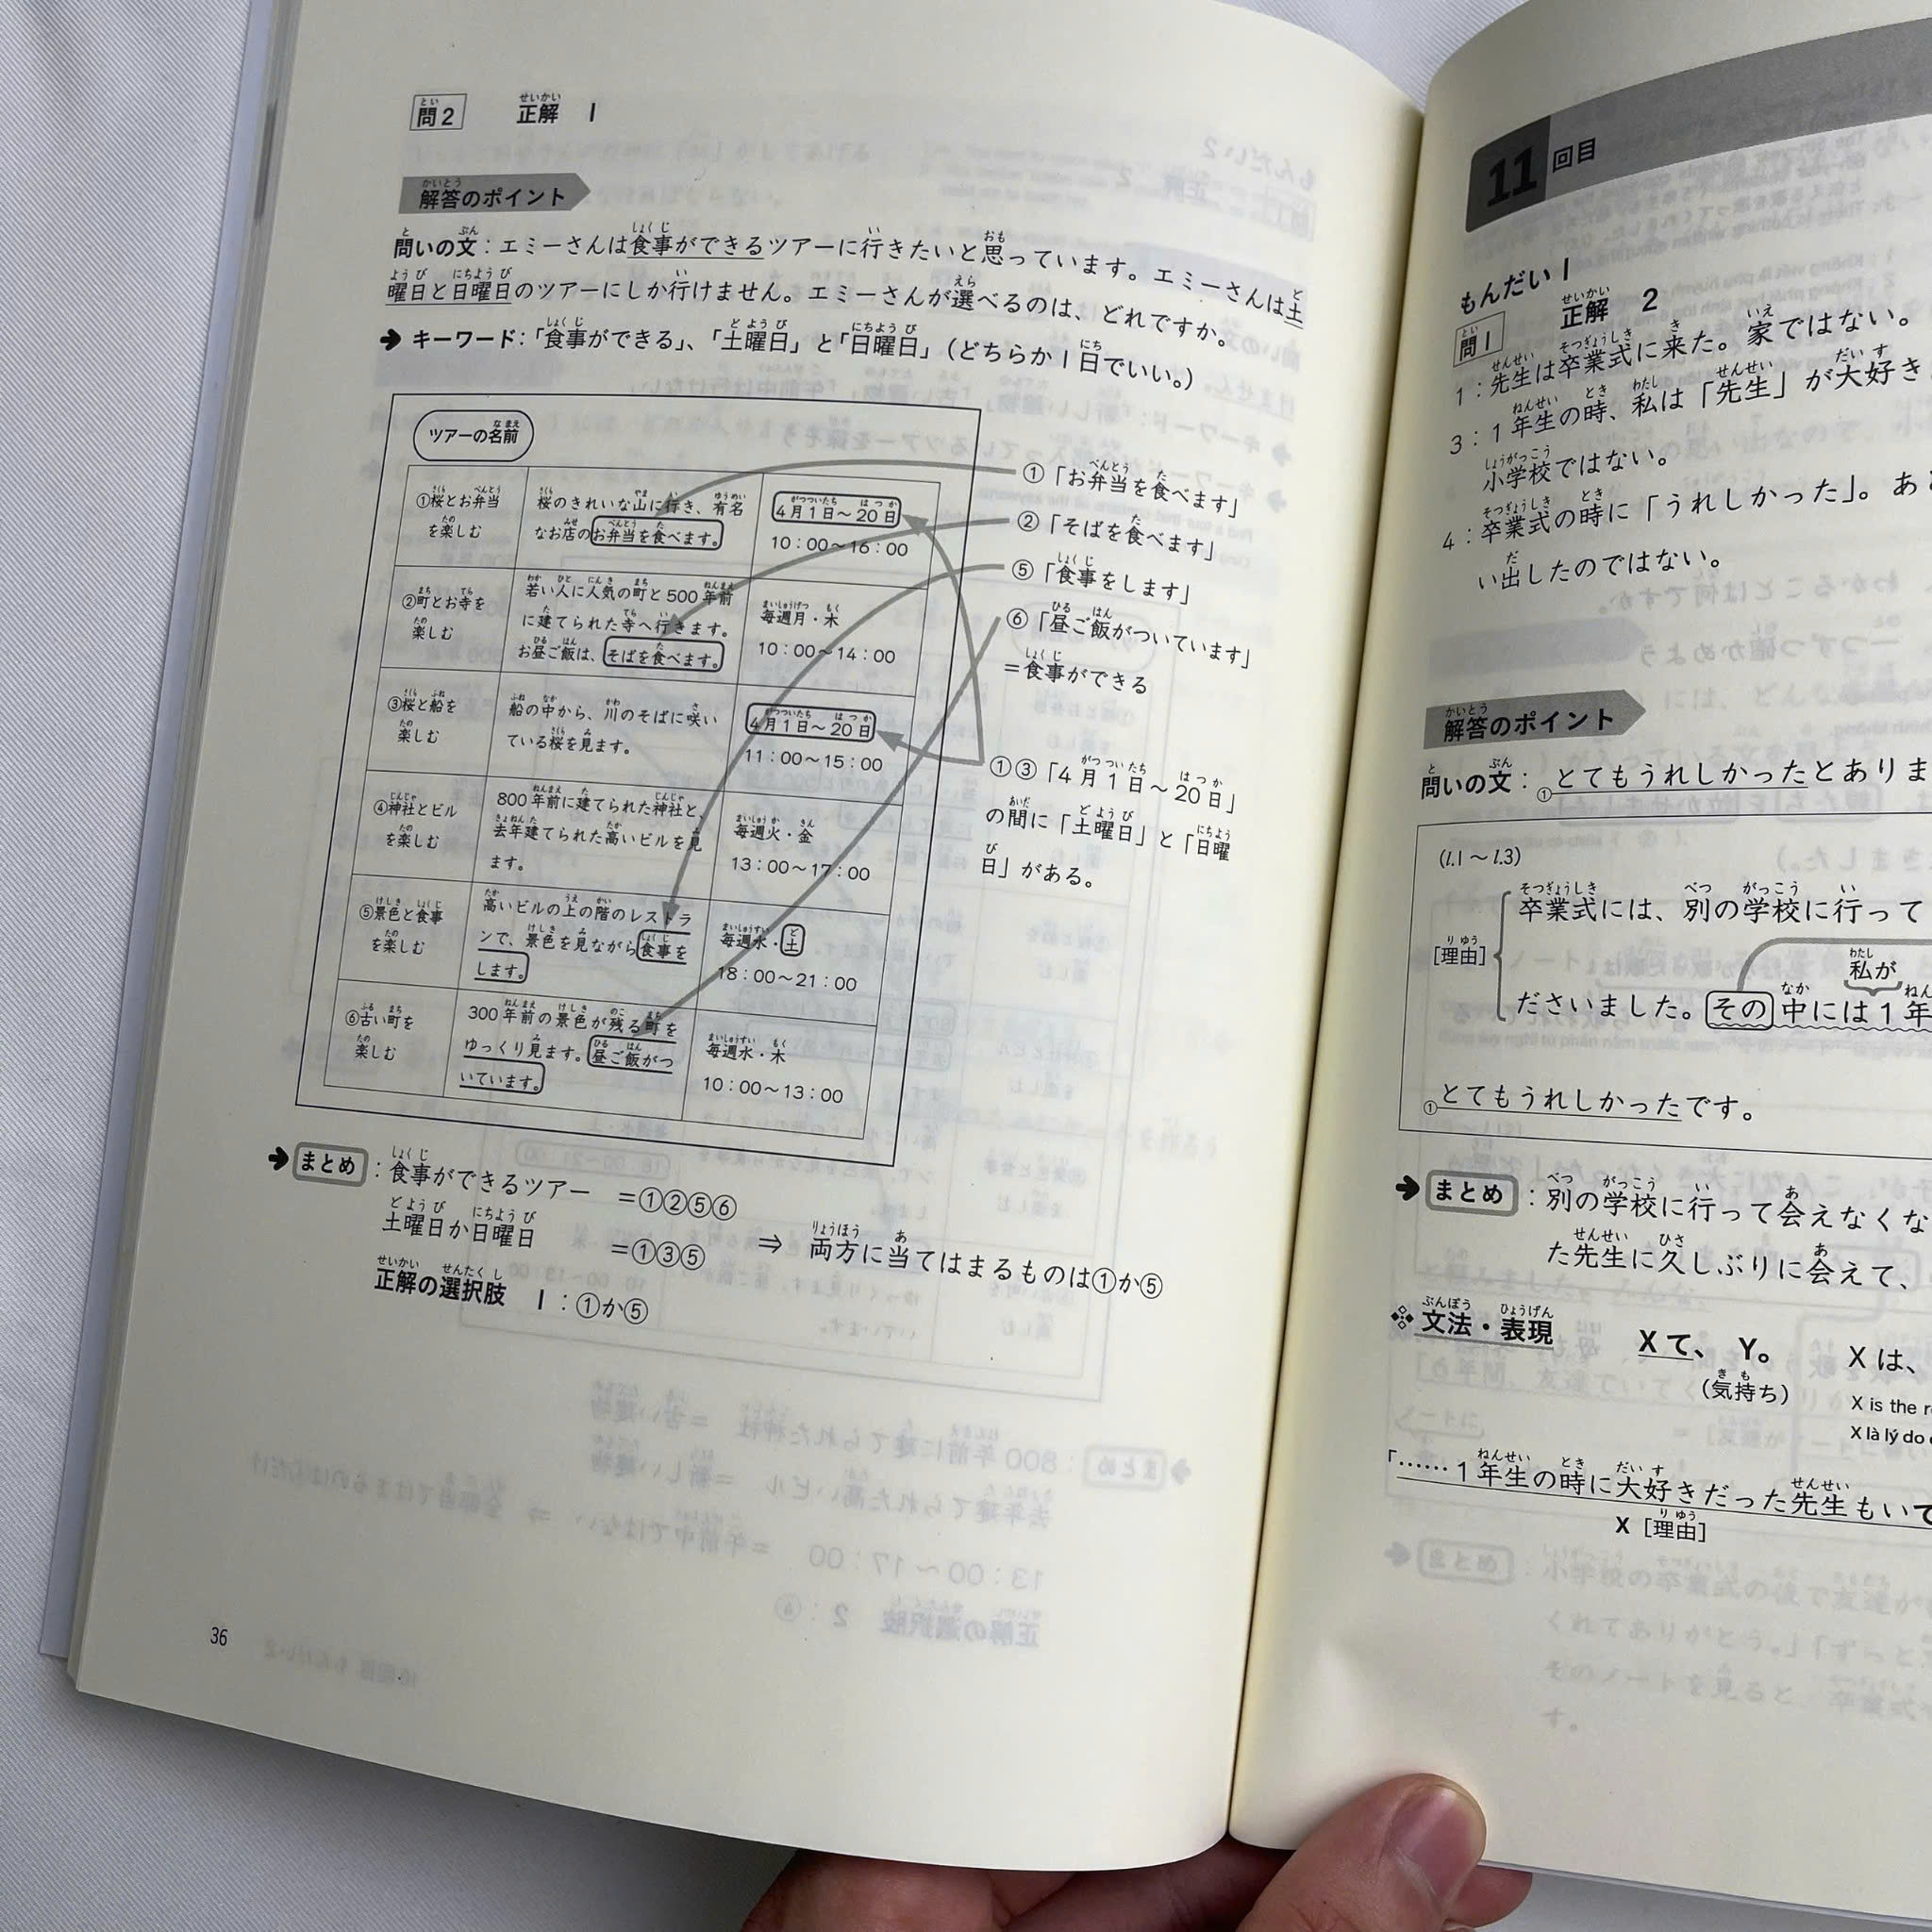 問2 正解 1
解答のポイント
問いの文：エミーさんは食事ができるツアーに行きたいと思っています。エミーさんは土
曜日と日曜日のツアーにしか行けません。エミーさんが選べるのは、どれですか。
➔ キーワード：「食事ができる」、「土曜日」と「日曜日」（どちらか1日でいい。）
ツアーの名前
①桜とお弁当
を楽しむ
桜のきれいな山に行き、有名
なお店のお弁当を食べます。
4月1日～20日
10：00～16：00
②町とお寺を
楽しむ
若い人に人気の町と500年前
に建てられた寺へ行きます。
お昼ご飯は、そばを食べます。
毎週月・木
10：00～14：00
③桜と船を
楽しむ
船の中から、川のそばに咲い
ている桜を見ます。
4月1日～20日
11：00～15：00
④神社とビル
を楽しむ
800年前に建てられた神社と、
去年建てられた高いビルを見
ます。
毎週火・金
13：00～17：00
⑤景色と食事
を楽しむ
高いビルの上の階のレストラ
ンで、景色を見ながら食事を
します。
毎週水・土
18：00～21：00
⑥古い町を
楽しむ
300年前の景色が残る町を
ゆっくり見ます。昼ご飯がつ
いています。
毎週水・木
10：00～13：00
①「お弁当を食べます」
②「そばを食べます」
⑤「食事をします」
⑥「昼ご飯がついています」
＝食事ができる
①③「4月1日～20日」
の間に「土曜日」と「日曜
日」がある。
➔ まとめ：食事ができるツアー ＝①②⑤⑥
土曜日か日曜日 ＝①③⑤ ⇒ 両方に当てはまるものは①か⑤
正解の選択肢 1：①か⑤
36
11 回目
もんだい1
問1 正解 2
1：先生は卒業式に来た。家ではない。
3：1年生の時、私は「先生」が大好き
小学校ではない。
4：卒業式の時に「うれしかった」。あ
い出したのではない。
解答のポイント
問いの文：①とてもうれしかったとありま
(l.1～l.3)
[理由]
卒業式には、別の学校に行って
私が
ださいました。その中には1年
①とてもうれしかったです。
➔ まとめ：別の学校に行って会えなくな
た先生に久しぶりに会えて、
文法・表現 Xて、Y。 Xは、
（気持ち）
X is the
X là lý do
「……1年生の時に大好きだった先生もいて
X［理由］